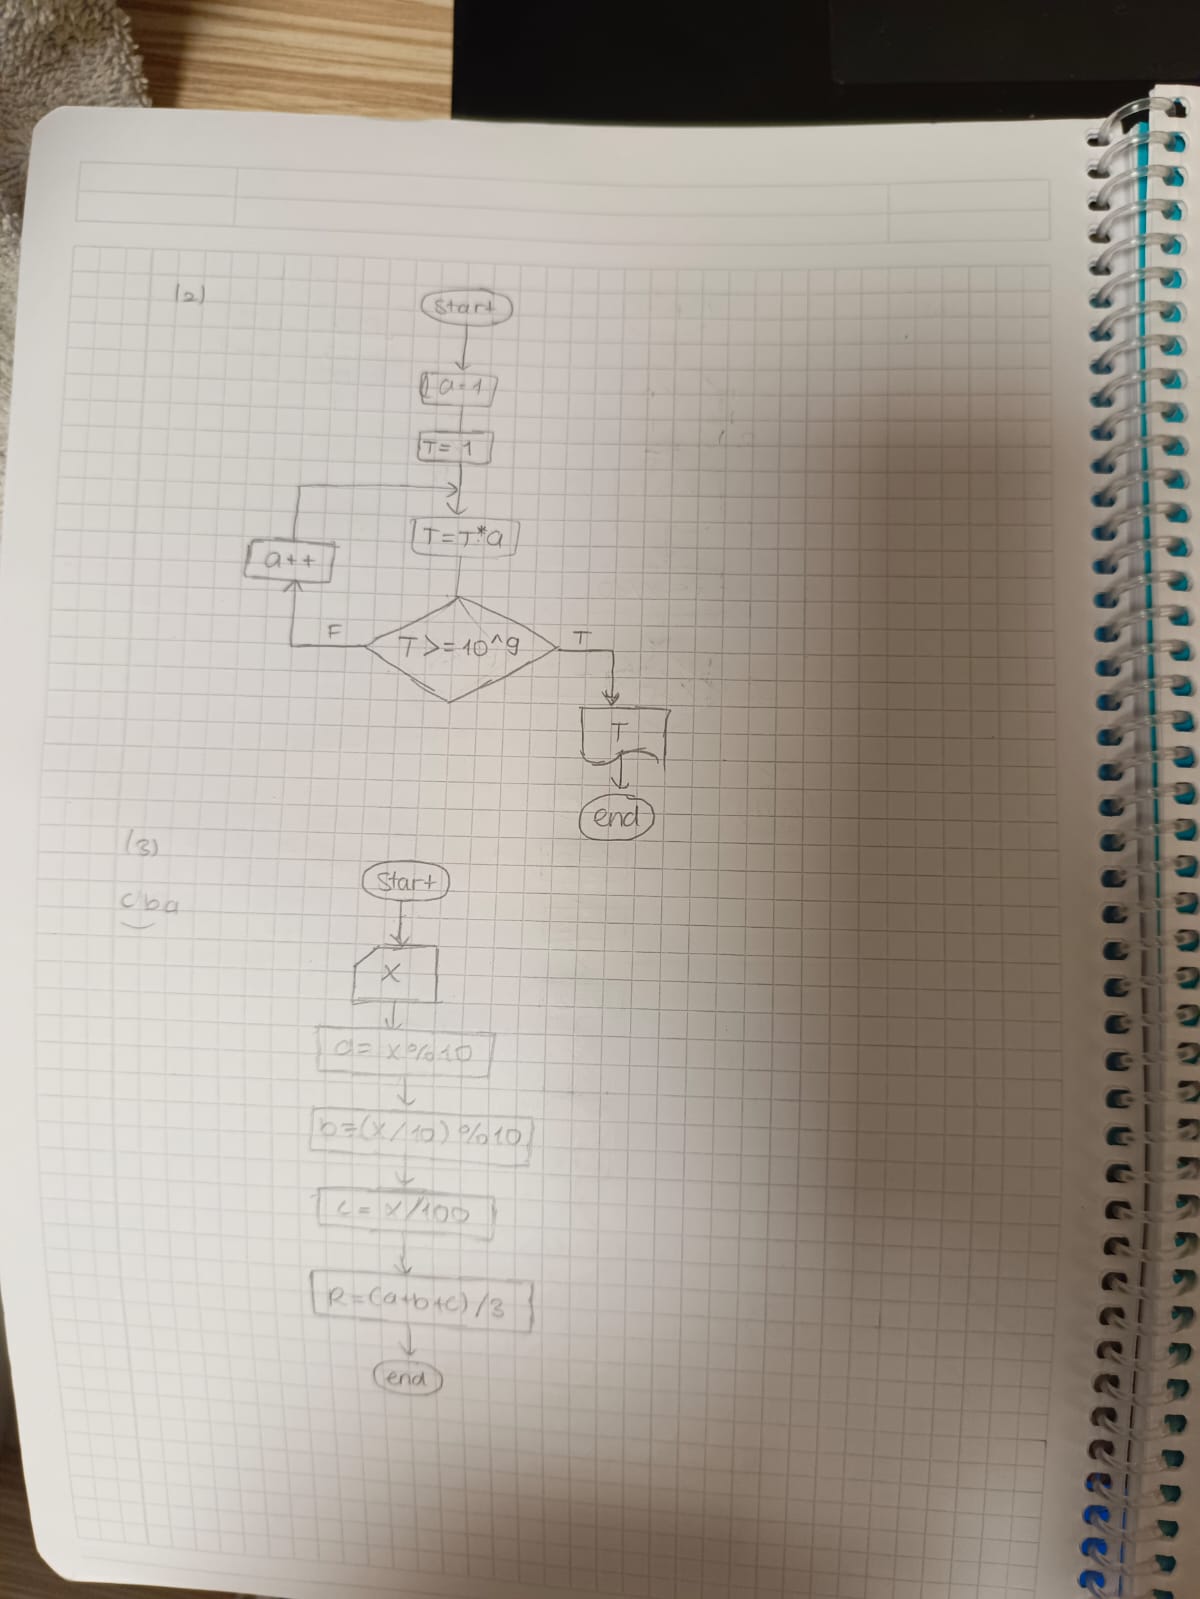 (2)
Start
a=1
T=1
T=T*a
T>=10^9
F
T
a++
T
end
(3)
cba
Start
X
a=x%10
b=(x/10)%10
c=x/100
R=(a+b+c)/3
end